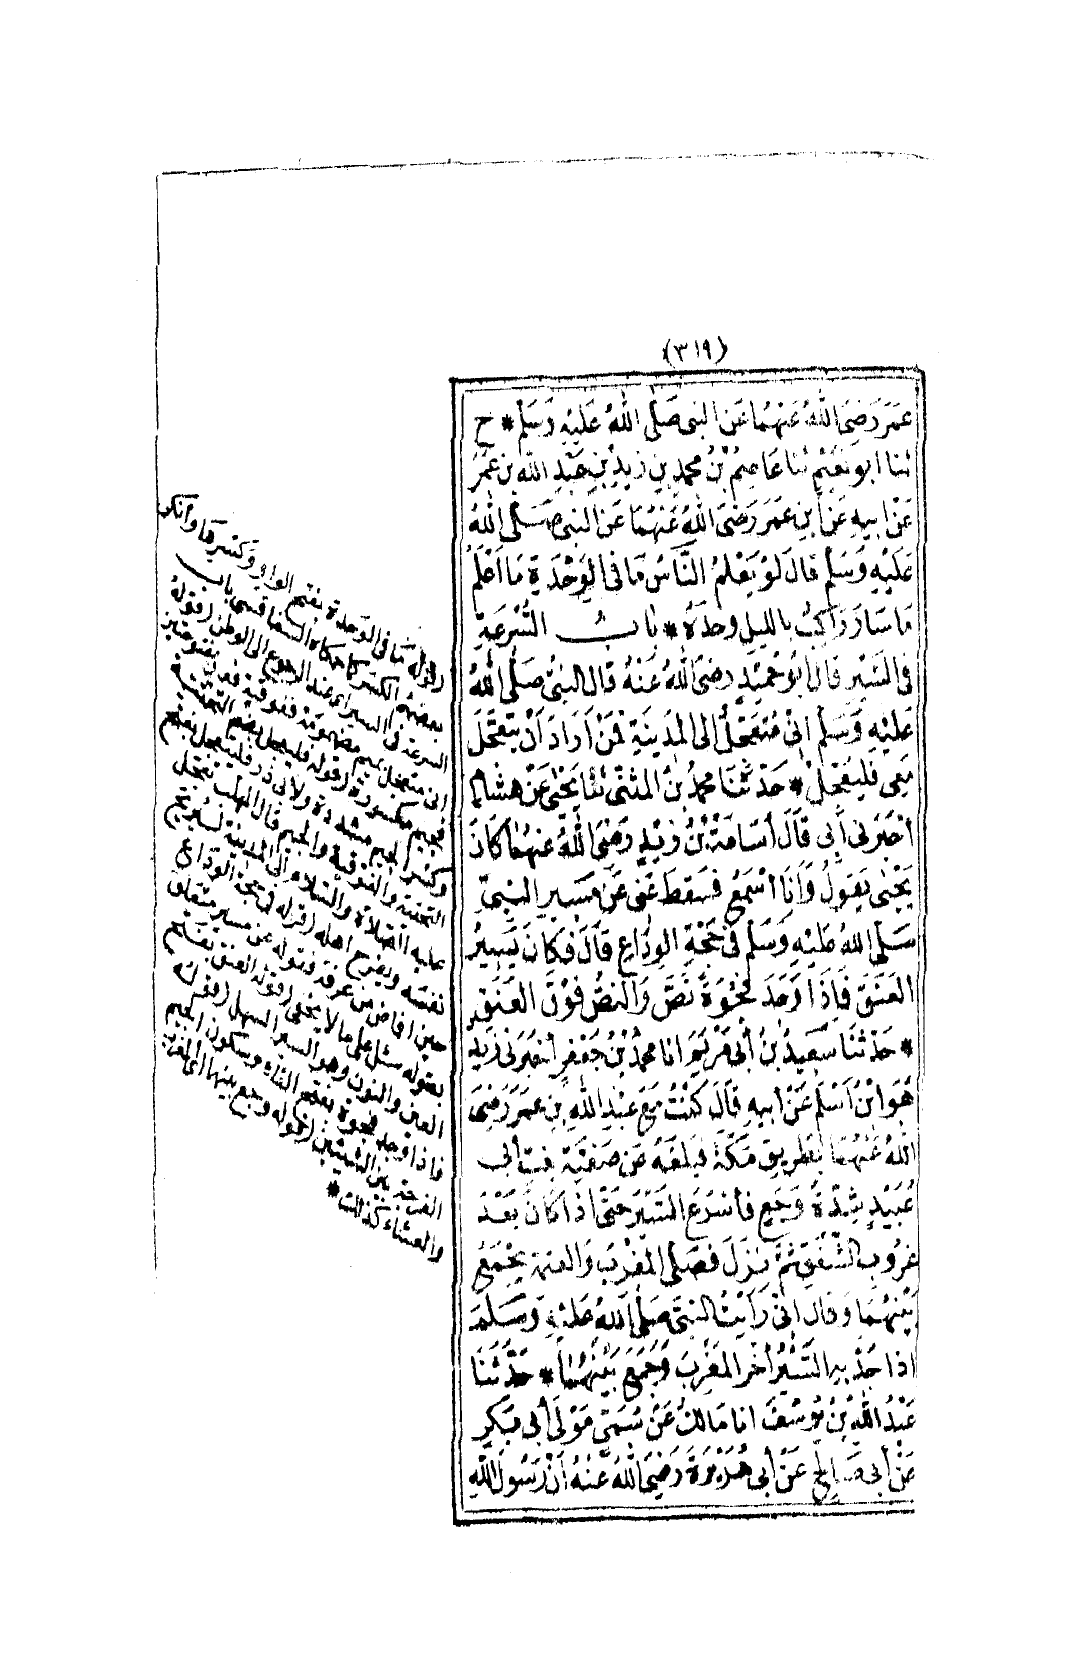 (٣١٩)
عمَرَ رَضِيَ اللهُ عَنْهُمَا عَنِ النبى صَلَّى اللهُ عَلَيْهِ وَسَلَّم * ح
ثنا ابو نُعَيْمٍ ثنا عَاصِمُ بْنُ محمدِ بنِ زيدِ بنِ عَبْدِ اللهِ بنِ عُمَرَ
عَنْ ابيهِ عَنِ ابنِ عمَرَ رَضِيَ اللهُ عَنْهُمَا عَنِ النبى صَلَّى اللهُ
عَلَيْهِ وَسَلَّم قالَ لَوْ يَعْلَمُ النَّاسُ مَا فى الوَحْدَةِ مَا اَعْلَمُ
مَا سَارَ رَاكِبٌ بالليلِ وحدَهُ * بَابُ السُّرْعَةِ
فى السَّيْرِ قالَ ابُو حُمَيْدٍ رضىَ اللهُ عَنْهُ قالَ النبىُّ صَلَّى اللهُ
عَلَيْهِ وَسَلَّم اِنّى مُتَعَجِّلٌ الى المَدينَةِ فَمَنْ اَرَادَ اَنْ يَتَعَجَّلَ
مَعِى فليعَجِّلْ * حَدّثَنَا محمدُ بنُ المثنّى ثنَا يَحْيَى عَنْ هشامٍ
اَخْبَرَنى أَبى قَالَ أُسَامَةُ بْنُ زيْدٍ رَضِىَ اللهُ عنهُمَا كَانَ
يَحْيَى يَقولُ وَأنَا اَسْمَعُ فسَقطَ عَنّى عَنْ مَسيرِ النَّبِىِّ
صَلَّى اللهُ عَلَيْهِ وَسَلَّم فى حَجَّةِ الوِدَاعِ قالَ فَكانَ يَسِيرُ
العَنَقَ فَاِذَا وَجَدَ فَجْوَةً نَصَّ وَالنَّصُّ فَوْقَ العَنَقِ
* حَدّثنَا سَعيدُ بنُ أبى مَرْيَمَ انا محمدُ بْنُ جَعْفَرٍ أخبَرَنى زَيدٌ
هُوَ ابنُ اَسْلَمَ عَنْ أبيهِ قَالَ كنْتُ مَعَ عَبْدِ اللهِ بنِ عمَرَ رَضِىَ
اللهُ عَنْهُمَا بطَريقِ مَكَّةَ فبَلَغَهُ عَنْ صَفِيَّةَ بنتِ أبى
عُبَيْدٍ شِدّةُ وَجَعٍ فأسْرَعَ السَّيْرَ حَتَّى اذا كانَ بَعْدَ
غروُبِ الشَّفَقِ ثمَّ نزَلَ فصَلَّى المغْرِبَ وَالعتمَةَ يجْمَعُ
بَيْنَهُمَا وَقالَ اِنّى رَأَيْتُ النبىَّ صَلَّى اللهُ عَلَيْهِ وَسَلَّمَ
اذا جَدَّ بهِ السَّيْرُ أخَّرَ المَغْرِبَ وَجَمَعَ بَيْنَهُمَا * حَدَّثَنَا
عَبْدُ اللهِ بْنُ يُوسُفَ انا مَالِكٌ عَنْ سُمَىٍّ مَوْلَى أَبى بَكْرٍ
عَنْ أبى صَالِحٍ عَنْ أبى هُرَيْرَةَ رَضِىَ اللهُ عَنْهُ أنَّ رَسُولَ اللهِ
(قوله مَا فى الوَحدة) بفتح الواو وكسرها وأنكر
بعضهم الكسر كما حكاه السفاقسى باب
السرعة فى السير اى عند الرجوع الى الوطن (قوله
انى متعجل) بميم مضمومة ففوقية فعين مفتوحتين
فجيم مكسورة (قوله فليعجل) بضم التحتية
وكسر الجيم مشددة ولابى ذر فليتعجل بفتح
التحتية والفوقية والجيم قال المهلب تعجل
عليه الصلاة والسلام الى المدينة ليريح
نفسه ويفرح اهله (قوله فى حجة الوداع)
حين افاض من عرفة وقوله عن مسير متعلق
بقوله سئل على ما لا يخفى (قوله العنق) بفتح
العين والنون وهو السير السهل (قوله
فاذا وجد فجوة) بفتح الفاء وسكون الجيم
الفرجة بين الشيئين (قوله وجمع بينهما) اى المغرب
والعشاء كذلك *